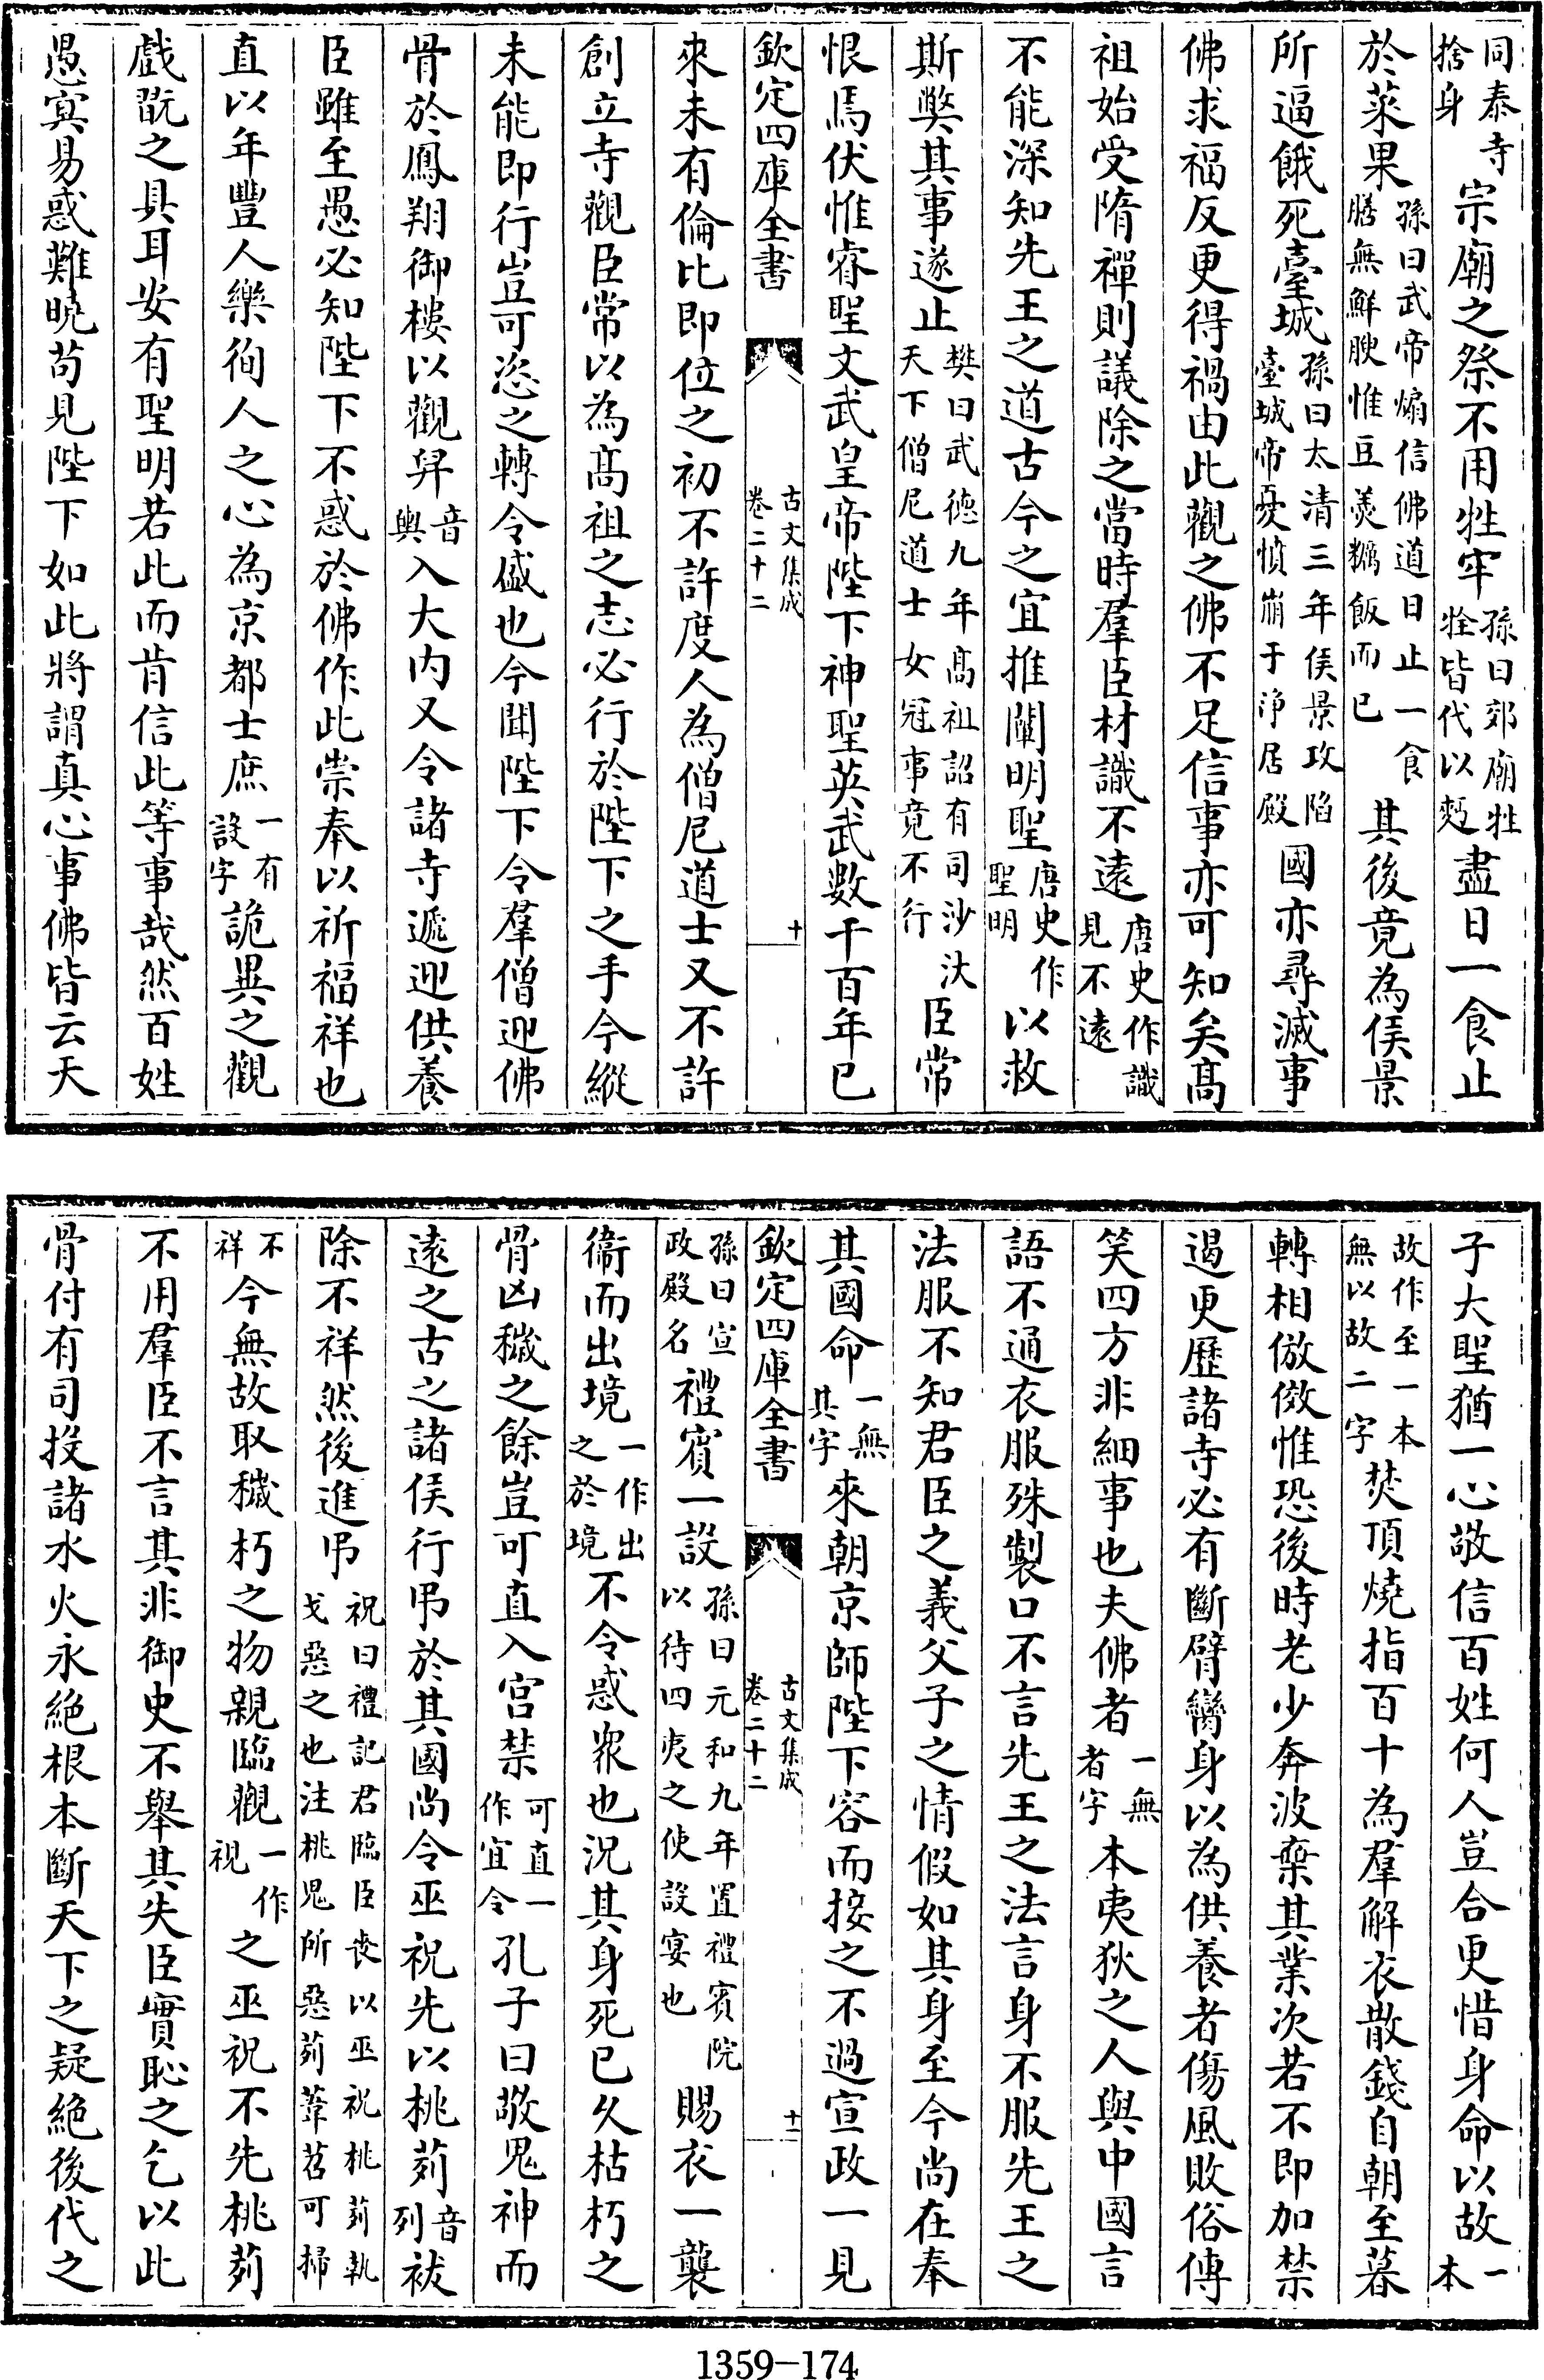 同泰寺捨身宗廟之祭不用牲牢孫曰郊廟牲牷皆代以麪盡日一食止
於菜果孫曰武帝煽信佛道日止一食膳無鮮腴惟豆羮糲飯而已其後竟為侯景
所逼餓死臺城孫曰太清三年侯景攻陷臺城帝憂憤崩于浄居殿國亦尋滅事
佛求福反更得禍由此觀之佛不足信事亦可知矣髙
祖始受隋禪則議除之當時羣臣材識不逺唐史作識見不遠
不能深知先王之道古今之宜推闡明聖唐史作聖明以救
斯弊其事遂止樊曰武德九年髙祖詔有司沙汰天下僧尼道士女冠事竟不行臣常
恨焉伏惟睿聖文武皇帝陛下神聖英武數千百年已
欽定四庫全書 古文集成卷二十二 十
來未有倫比即位之初不許度人為僧尼道士又不許
創立寺觀臣常以為髙祖之志必行於陛下之手今縱
未能即行豈可恣之轉令盛也今聞陛下令羣僧迎佛
骨於鳳翔御樓以觀舁音輿入大内又令諸寺遞迎供養
臣雖至愚必知陛下不惑於佛作此崇奉以祈福祥也
直以年豐人樂徇人之心為京都士庶一有設字詭異之觀
戲翫之具耳安有聖明若此而肯信此等事哉然百姓
愚冥易惑難曉苟見陛下如此將謂真心事佛皆云天
子大聖猶一心敬信百姓何人豈合更惜身命以故一本
故作至一本無以故二字焚頂燒指百十為羣解衣散錢自朝至暮
轉相倣傚惟恐後時老少奔波棄其業次若不即加禁
遏更歷諸寺必有斷臂臠身以為供養者傷風敗俗傳
笑四方非細事也夫佛者一無者字本夷狄之人與中國言
語不通衣服殊製口不言先王之法言身不服先王之
法服不知君臣之義父子之情假如其身至今尚在奉
其國命一無其字來朝京師陛下容而接之不過宣政一見
欽定四庫全書 古文集成卷二十二 十一
孫曰宣政殿名禮賓一設孫曰元和九年置禮賓院以待四夷之使設宴也賜衣一襲
衞而出境一作出之於境不令惑衆也況其身死已久枯朽之
骨凶穢之餘豈可直入宫禁可直一作宜令孔子曰敬鬼神而
逺之古之諸侯行弔於其國尚令巫祝先以桃茢音列祓
除不祥然後進弔祝曰禮記君臨臣喪以巫祝桃茢執戈惡之也注桃鬼所惡茢葦苕可掃
不祥今無故取穢朽之物親臨觀一作視之巫祝不先桃茢
不用羣臣不言其非御史不舉其失臣實恥之乞以此
骨付有司投諸水火永絕根本斷天下之疑絕後代之
1359-174